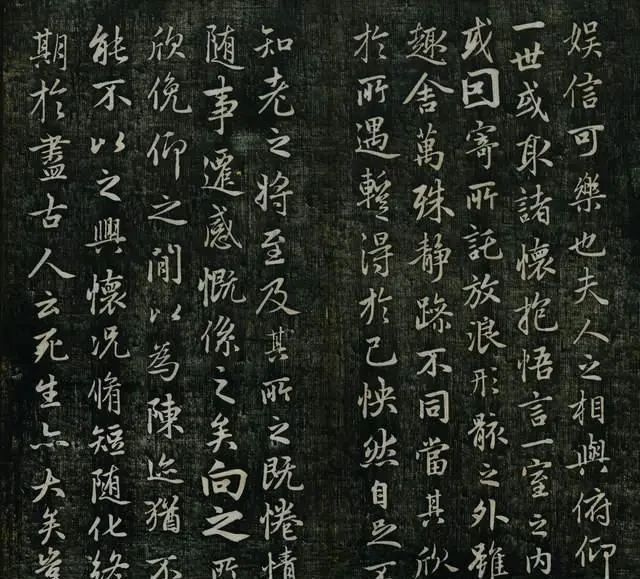 娱信可樂也夫人之相與俯仰
一世或取諸懷抱悟言一室之内
或因寄所託放浪形骸之外雖
趣舍萬殊静躁不同當其欣
於所遇蹔得於己怏然自足不
知老之將至及其所之既惓情
随事遷感慨係之矣向之所
欣俛仰之閒以為陳迹猶不
能不以之興懷况脩短随化終
期於盡古人云死生亦大矣豈